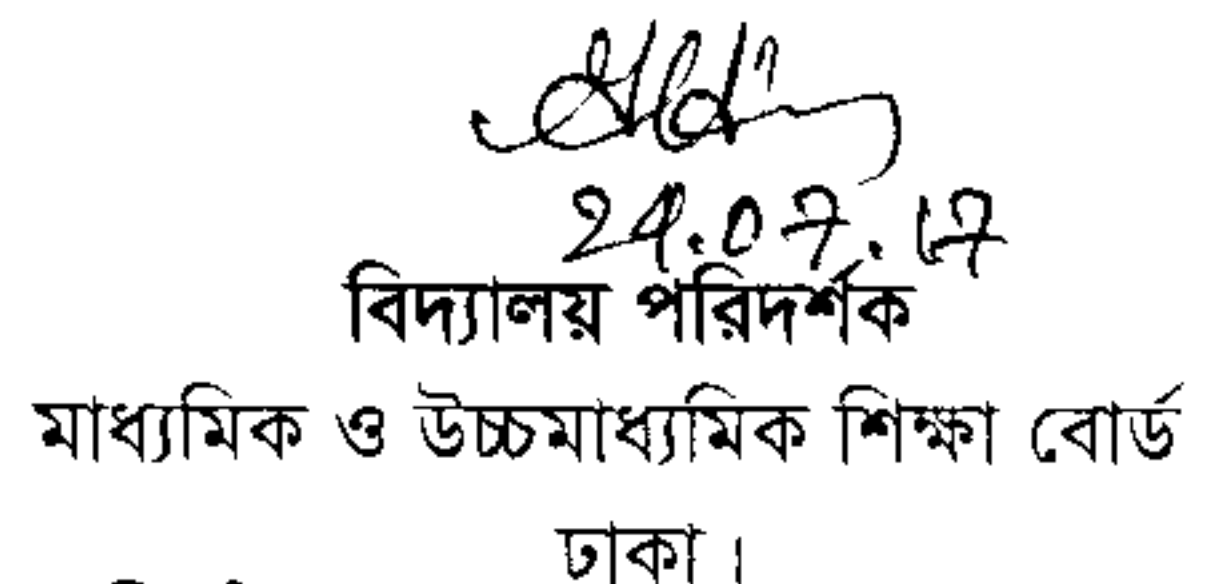 24.07.17
বিদ্যালয় পরিদর্শক
মাধ্যমিক ও উচ্চমাধ্যমিক শিক্ষা বোর্ড
ঢাকা।